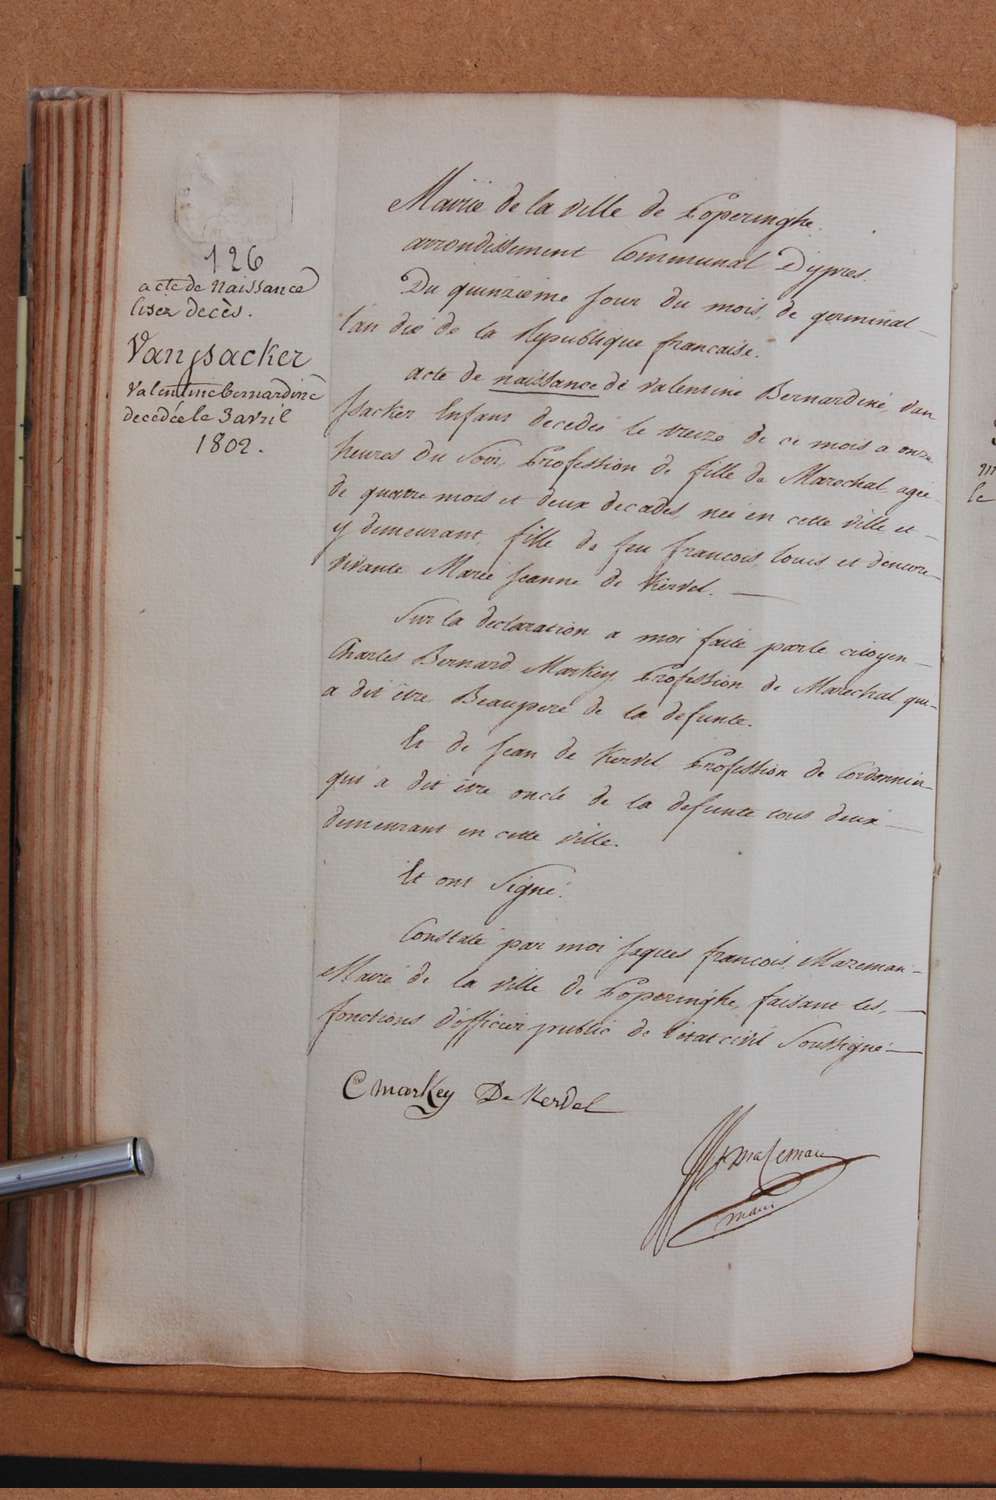 126
acte de Naissance
lisez decès.
Vanpsacker
Valentine bernardine
decedée le 3 avril
1802.
Mairie de la ville de Poperinghe.
arrondissement Communal Dijpres.
Du quinzieme jour du mois de germinal
l'an dix de la Republique francaise.
acte de naissance de Valentine Bernardine van
psacker Enfant decedée le treize de ce mois a onze
heures du Soir, Profession de fille de Marechal, agée
de quatre mois et deux decades, née en cette ville et
y demeurant, fille de feu francois louis et d'encore
vivante Marie Jeanne de Kervel.
Sur la declaration a moi faite par le citoyen
Charles Bernard Markey Profession de Marechal qui
a dit être Beaupere de la defunte.
Et de Jean de Kervel Profession de Cordonnier
qui a dit être oncle de la defunte tous deux
demeurant en cette ville.
Et ont Signé.
Constaté par moi Jaques francois Mazeman
Maire de la ville de Poperinghe, faisant les
fonctions d'officier public de l'état civil Soussigné
C markey De Kervel
Mazeman
maire
le